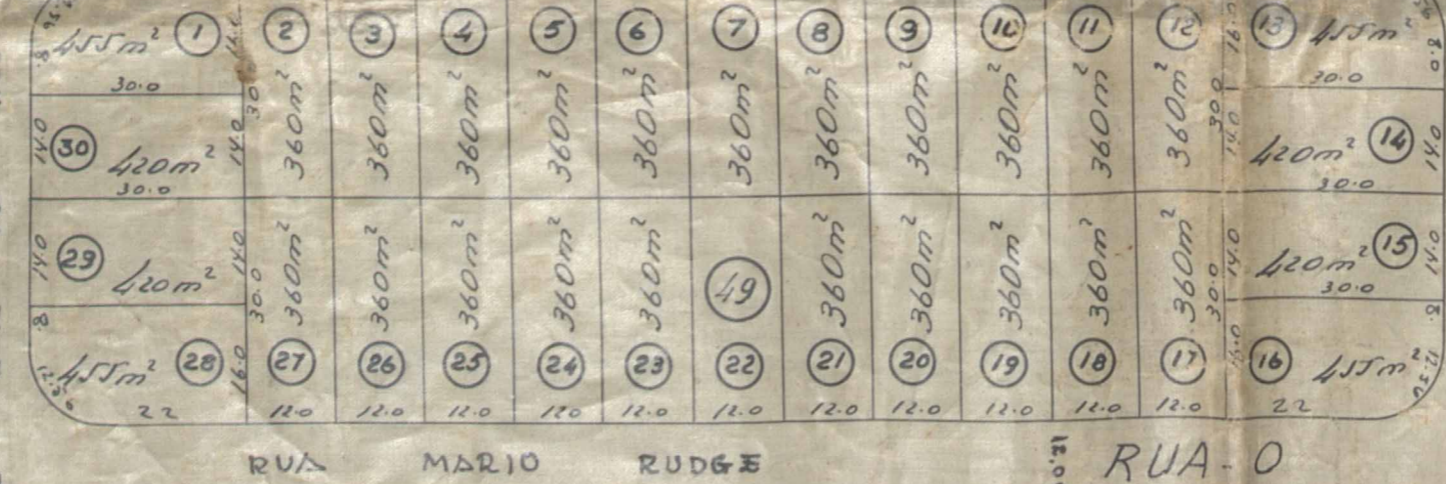 455m² 1 2 3 4 5 6 7 8 9 10 11 12 13 455m²
.8 16.0 8.0
30.0 30.0
360m² 360m² 360m² 360m² 360m² 360m² 360m² 360m² 360m² 360m² 360m²
30 30.0
14.0 30 420m² 14.0 14.0 420m² 14 14.0
30.0 30.0
14.0 29 420m² 14.0 14.0 420m² 15 14.0
30.0
360m² 360m² 360m² 360m² 360m² 49 360m² 360m² 360m² 360m² 360m²
30.0 30.0
.8 8.
12.56 455m² 28 16.0 27 26 25 24 23 22 21 20 19 18 17 16.0 16 455m² 12.56
22 12.0 12.0 12.0 120 12.0 12.0 12.0 12.0 12.0 12.0 12.0 22
RUA MARIO RUDGE 12.0 RUA-O